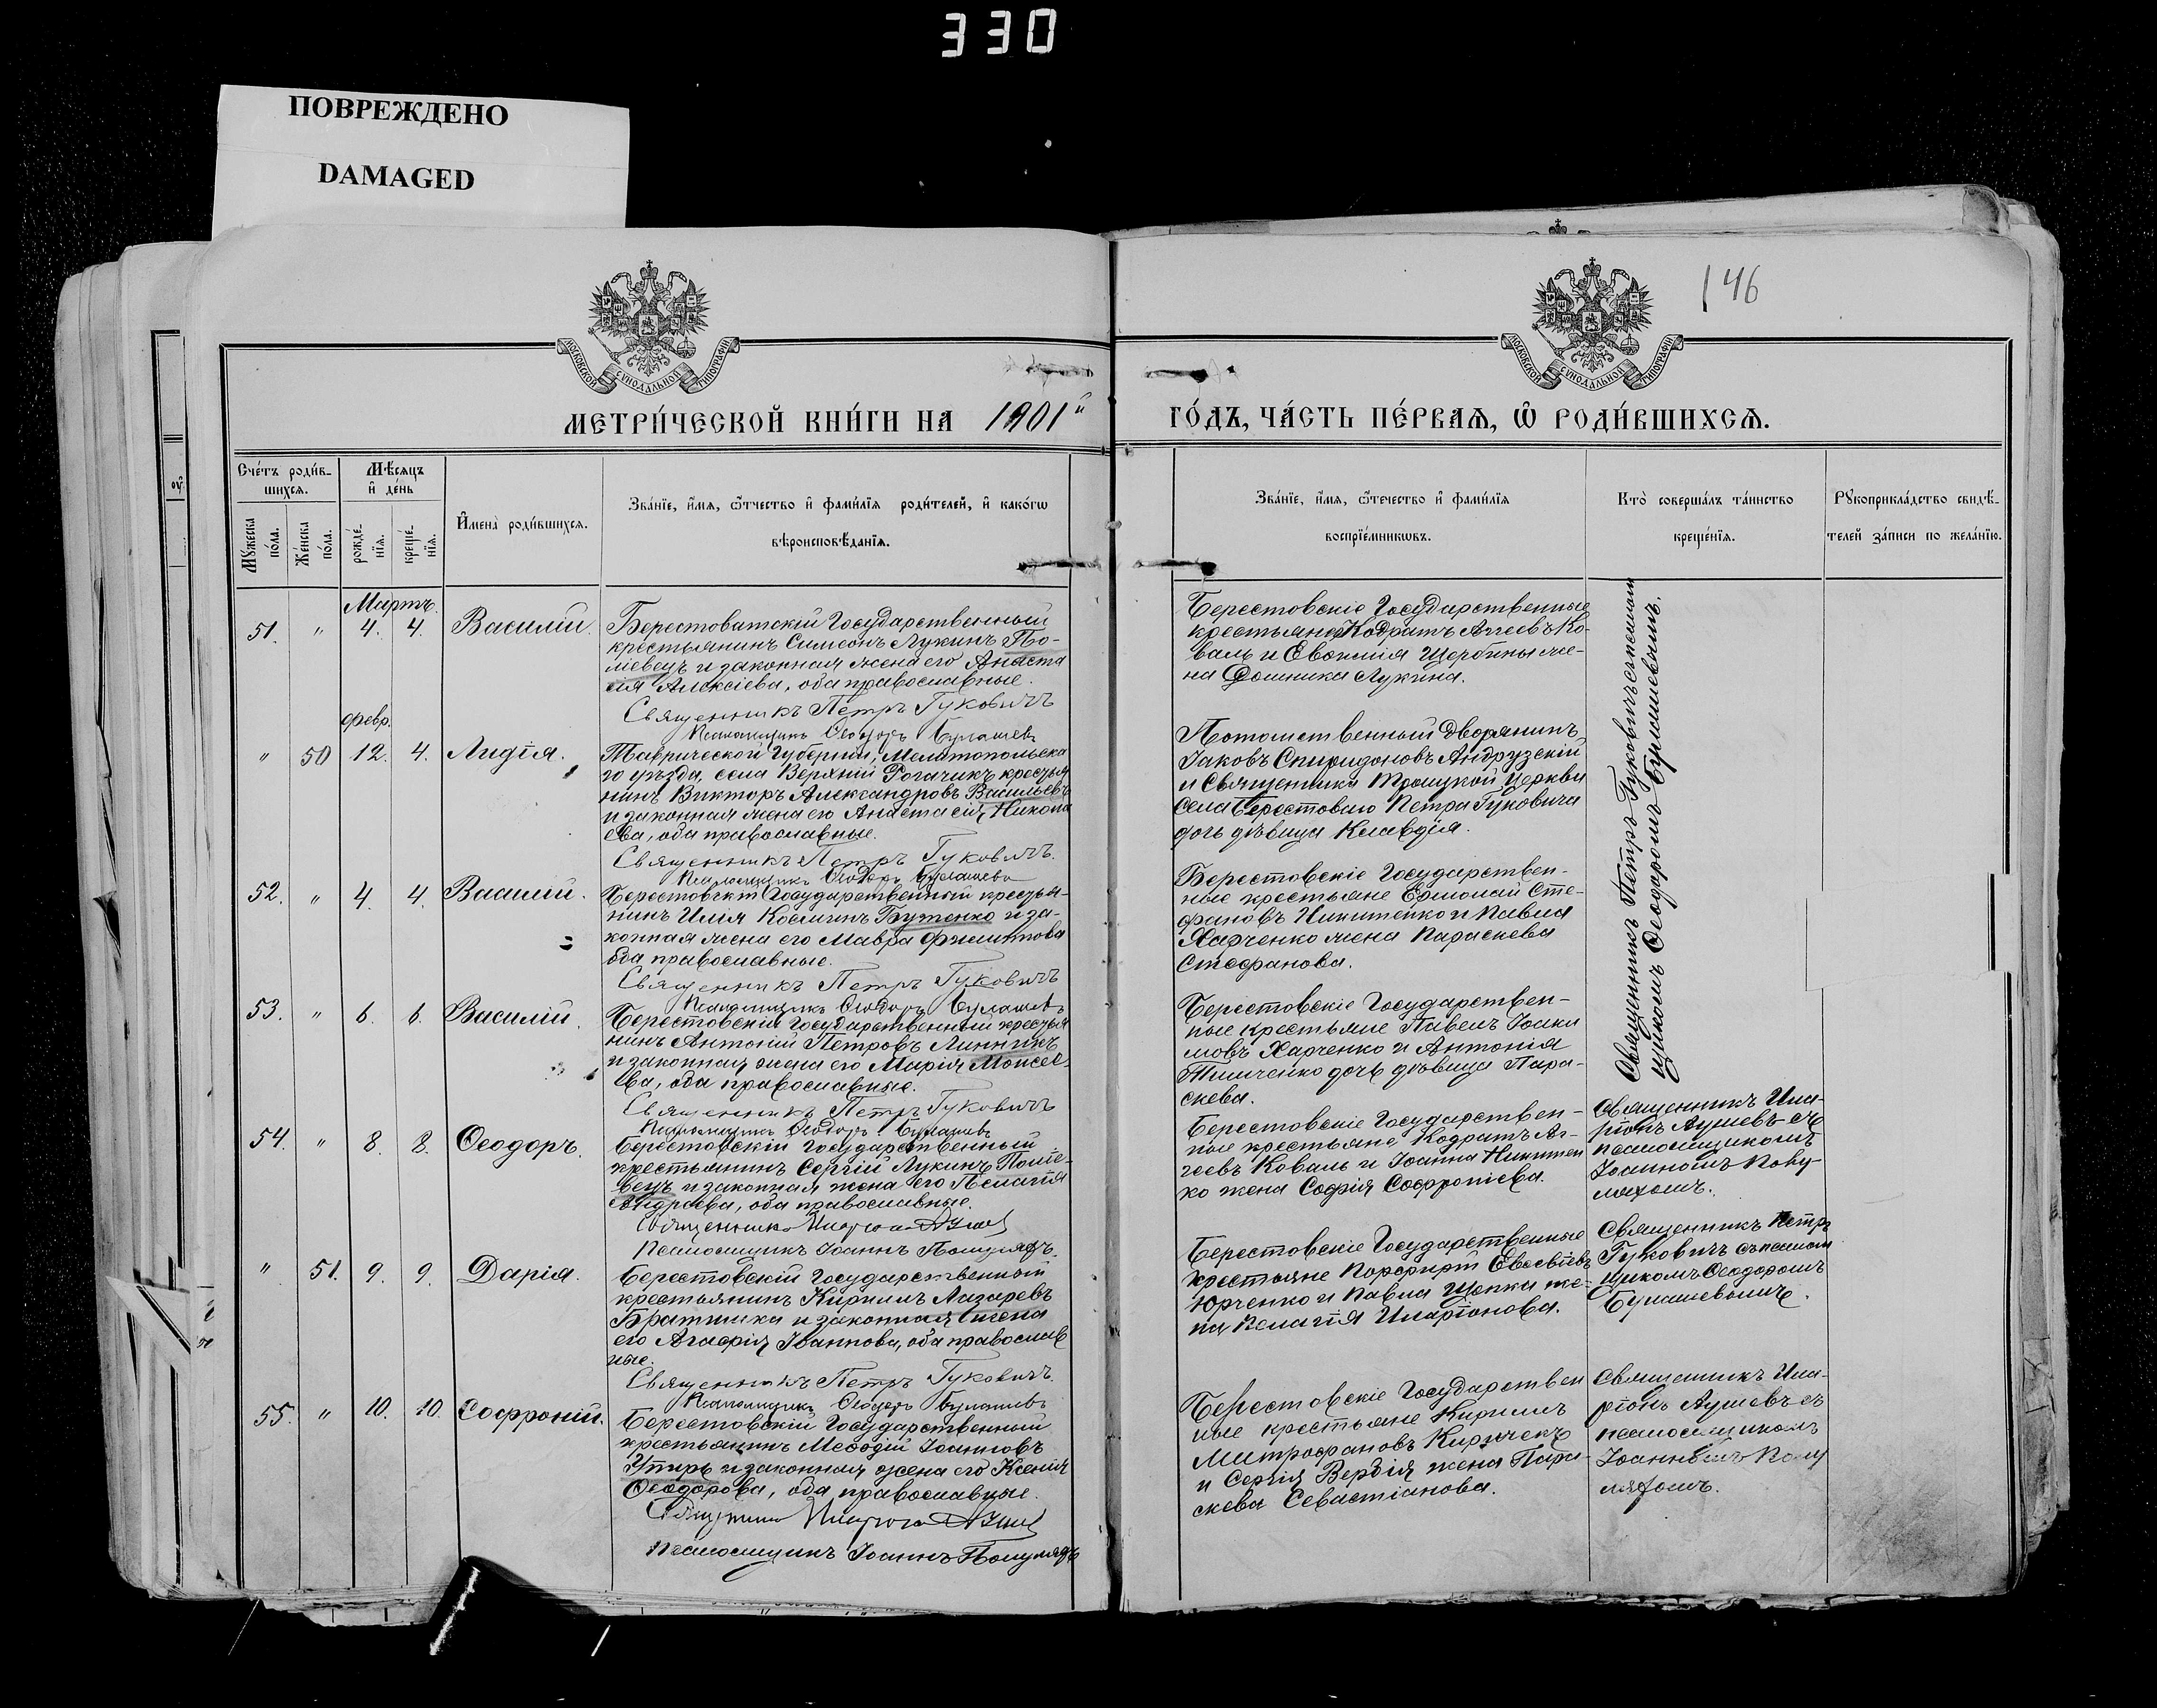 330
ПОВРЕЖДЕНО
DAMAGED
146
МОСКОВСКОЙ СѴНОДАЛЬНОЙ ТИПОГРАФІИ
МОСКОВСКОЙ СѴНОДАЛЬНОЙ ТИПОГРАФІИ
МЕТРИ́ЧЕСКОЙ КНИ́ГИ НА 1901й
ГО́ДЪ, ЧА́СТЬ ПЕ́РВАѦ, Ѽ РОДИ́ВШИХСѦ.
Сче́тъ роди́в-
шихсѧ.
Мѣ́сѧцъ
и҆ де́нь
Мꙋ́жеска по́ла.
Же́нска по́ла.
рожде́-
нїѧ.
креще́-
нїѧ.
И҆мена̀ роди́вшихсѧ.
Зва́нїе, и҆́мѧ, ѻ҆́тчество и҆ фами́лїѧ роди́телей, и҆ како́гѡ
вѣроисповѣ́данїѧ.
Зва́нїе, и҆́мѧ, ѻ҆те́чество и҆ фами́лїѧ
воспрїе́мникѡвъ.
Кто̀ соверша́лъ та́инство
креще́нїѧ.
Рꙋкоприкла́дство свидѣ́-
телей за́писи по жела́нїю.
Мартъ.
51. " 4. 4. Василій.
Берестоватскій Государственный
крестьянинъ Симеонъ Лукинъ По-
лѣвецъ и законная жена его Анаста
сія Алексіева, оба православные.
Священникъ Петръ Гуковичъ
Псаломщикъ Ѳеодоръ Булашевъ
Берестовскіе Государственные
крестьяне Кодратъ Аггеевъ Ко-
валь и Евѳимія Щербины же-
на Домники Лукина.
февр.
" 50 12. 4. Лидія.
Таврической Губерніи, Мелитопольска
го уѣзда, села Верхній Рогачикъ крестья
нинъ Викторъ Александровъ Васильевъ
и законная жена его Анастасія Никола
ева, оба православные.
Священникъ Петръ Гуковичъ.
Псаломщикъ Ѳеодоръ Булашевъ
Потомственный дворянинъ
Іаковъ Спиридоновъ Андрузскій
и Священника Троицкой Церкви
села Берестоваго Петра Гуковича
дочь дѣвица Клавдія.
52. " 4. 4. Василій.
Берестовскій Государственный крестья-
нинъ Илія Косминъ Буженко и за-
конная жена его Мавра Филиппова
оба православные.
Священникъ Петръ Гуковичъ
Псаломщикъ Ѳеодоръ Булашевъ
Берестовскіе Государствен-
ные крестьяне Ермолай Сте-
фановъ Никитенко и Павла
Харченко жена Параскева
Стефанова.
53. " 6. 6. Василій.
Берестовскій Государственный крестья
нинъ Антоній Петровъ Линникъ
и законная жена его Марія Моисее-
ева, оба православные.
Священникъ Петръ Гуковичъ
Псаломщикъ Ѳеодоръ Булашевъ
Берестовскіе Государствен-
ные крестьяне Павелъ Іоаки
мовъ Харченко и Антонія
Тимченко дочь дѣвица Пара-
скева.
Священникъ Петръ Гуковичъ съ псалом
щикомъ Ѳеодоромъ Булашевымъ.
54. " 8. 8. Ѳеодоръ.
Берестовскій Государственный
крестьянинъ Сергій Лукинъ Полѣ-
вецъ и законная жена его Пелагія
Андреева, оба православные.
Священникъ
Псаломщикъ Іоаннъ
Берестовскіе Государствен-
ные крестьяне Кодратъ Аг-
геевъ Коваль и Іоанна Никитен
ко жена Софія Софроніева.
Священникъ Ила-
ріонъ съ
псаломщикомъ
Іоанномъ
" 51. 9. 9. Дарія.
Берестовскій Государственный
крестьянинъ Кириллъ Лазаревъ
Братишка и законная жена
его Агафія Іоаннова, оба православ
ные.
Священникъ Петръ Гуковичъ.
Псаломщикъ Ѳеодоръ Булашевъ
Берестовскіе Государственные
крестьяне Порфирій Евсевіевъ
Юрченко и Павла Щепки же-
на Пелагія Иларіонова.
Священникъ Петръ
Гуковичъ съ псалом
щикомъ Ѳеодоромъ
Булашевымъ.
55. " 10. 10. Софроній.
Берестовскій Государственный
крестьянинъ Меѳодій Іоанновъ
Упирь и законная жена его Ксенія
Ѳеодорова, оба православные.
Священникъ
Псаломщикъ Іоаннъ
Берестовскіе Государствен
ные крестьяне Кириллъ
Митрофановъ Киричекъ
и Сергія Вербія жена Пара-
скева Севастіанова.
Священникъ Ила-
ріонъ съ
псаломщикомъ
Іоанномъ